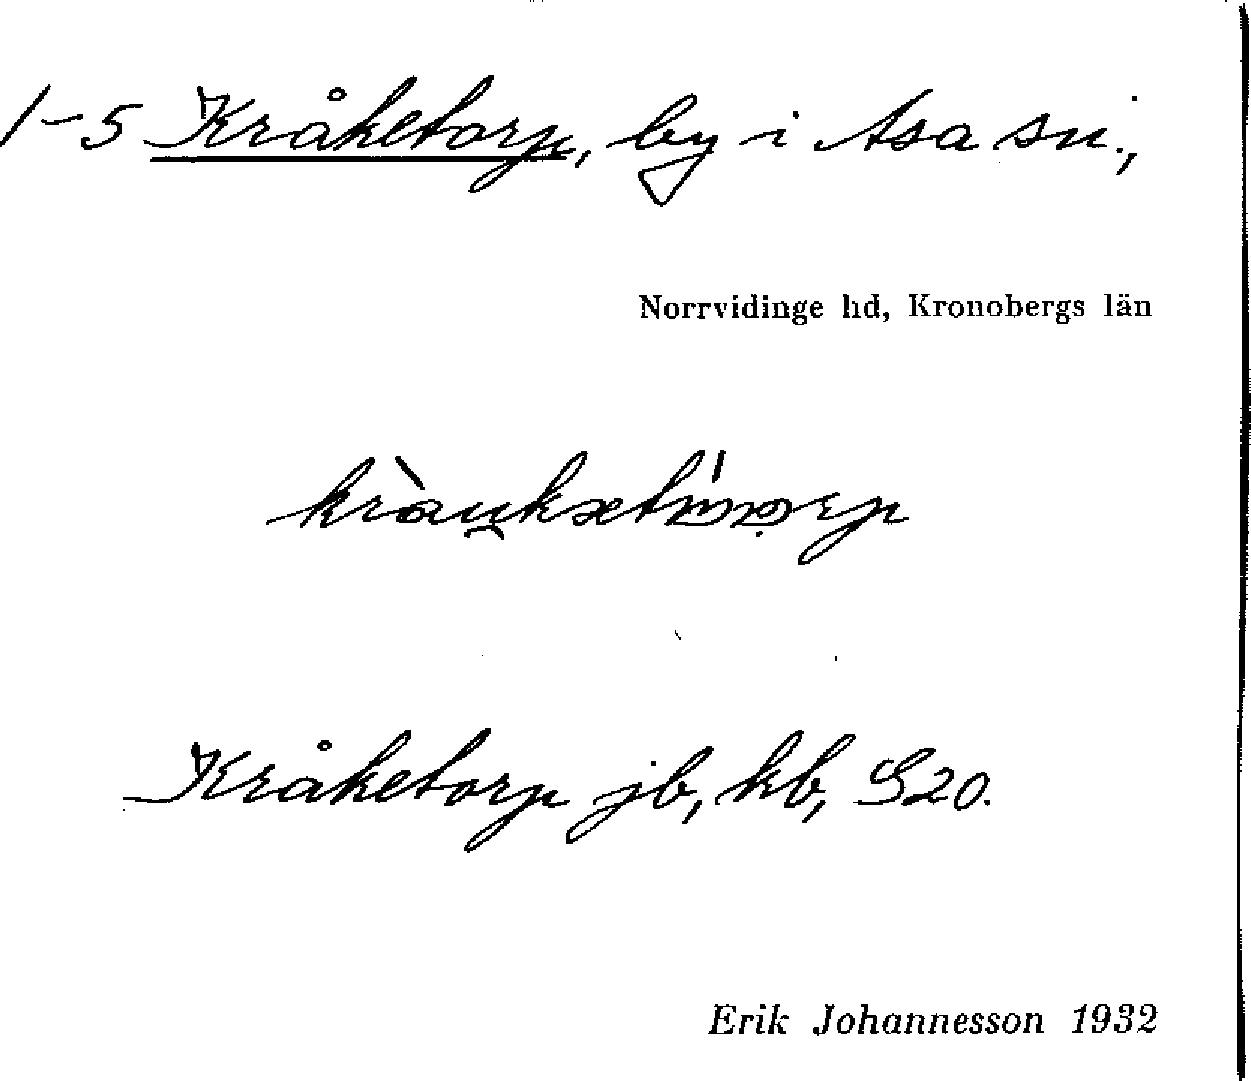 1-5 Kråketorp, by i Asa sn.,
Norrvidinge hd, Kronobergs län
Kråketorp jb, kb, S20.
Erik Johannesson 1932